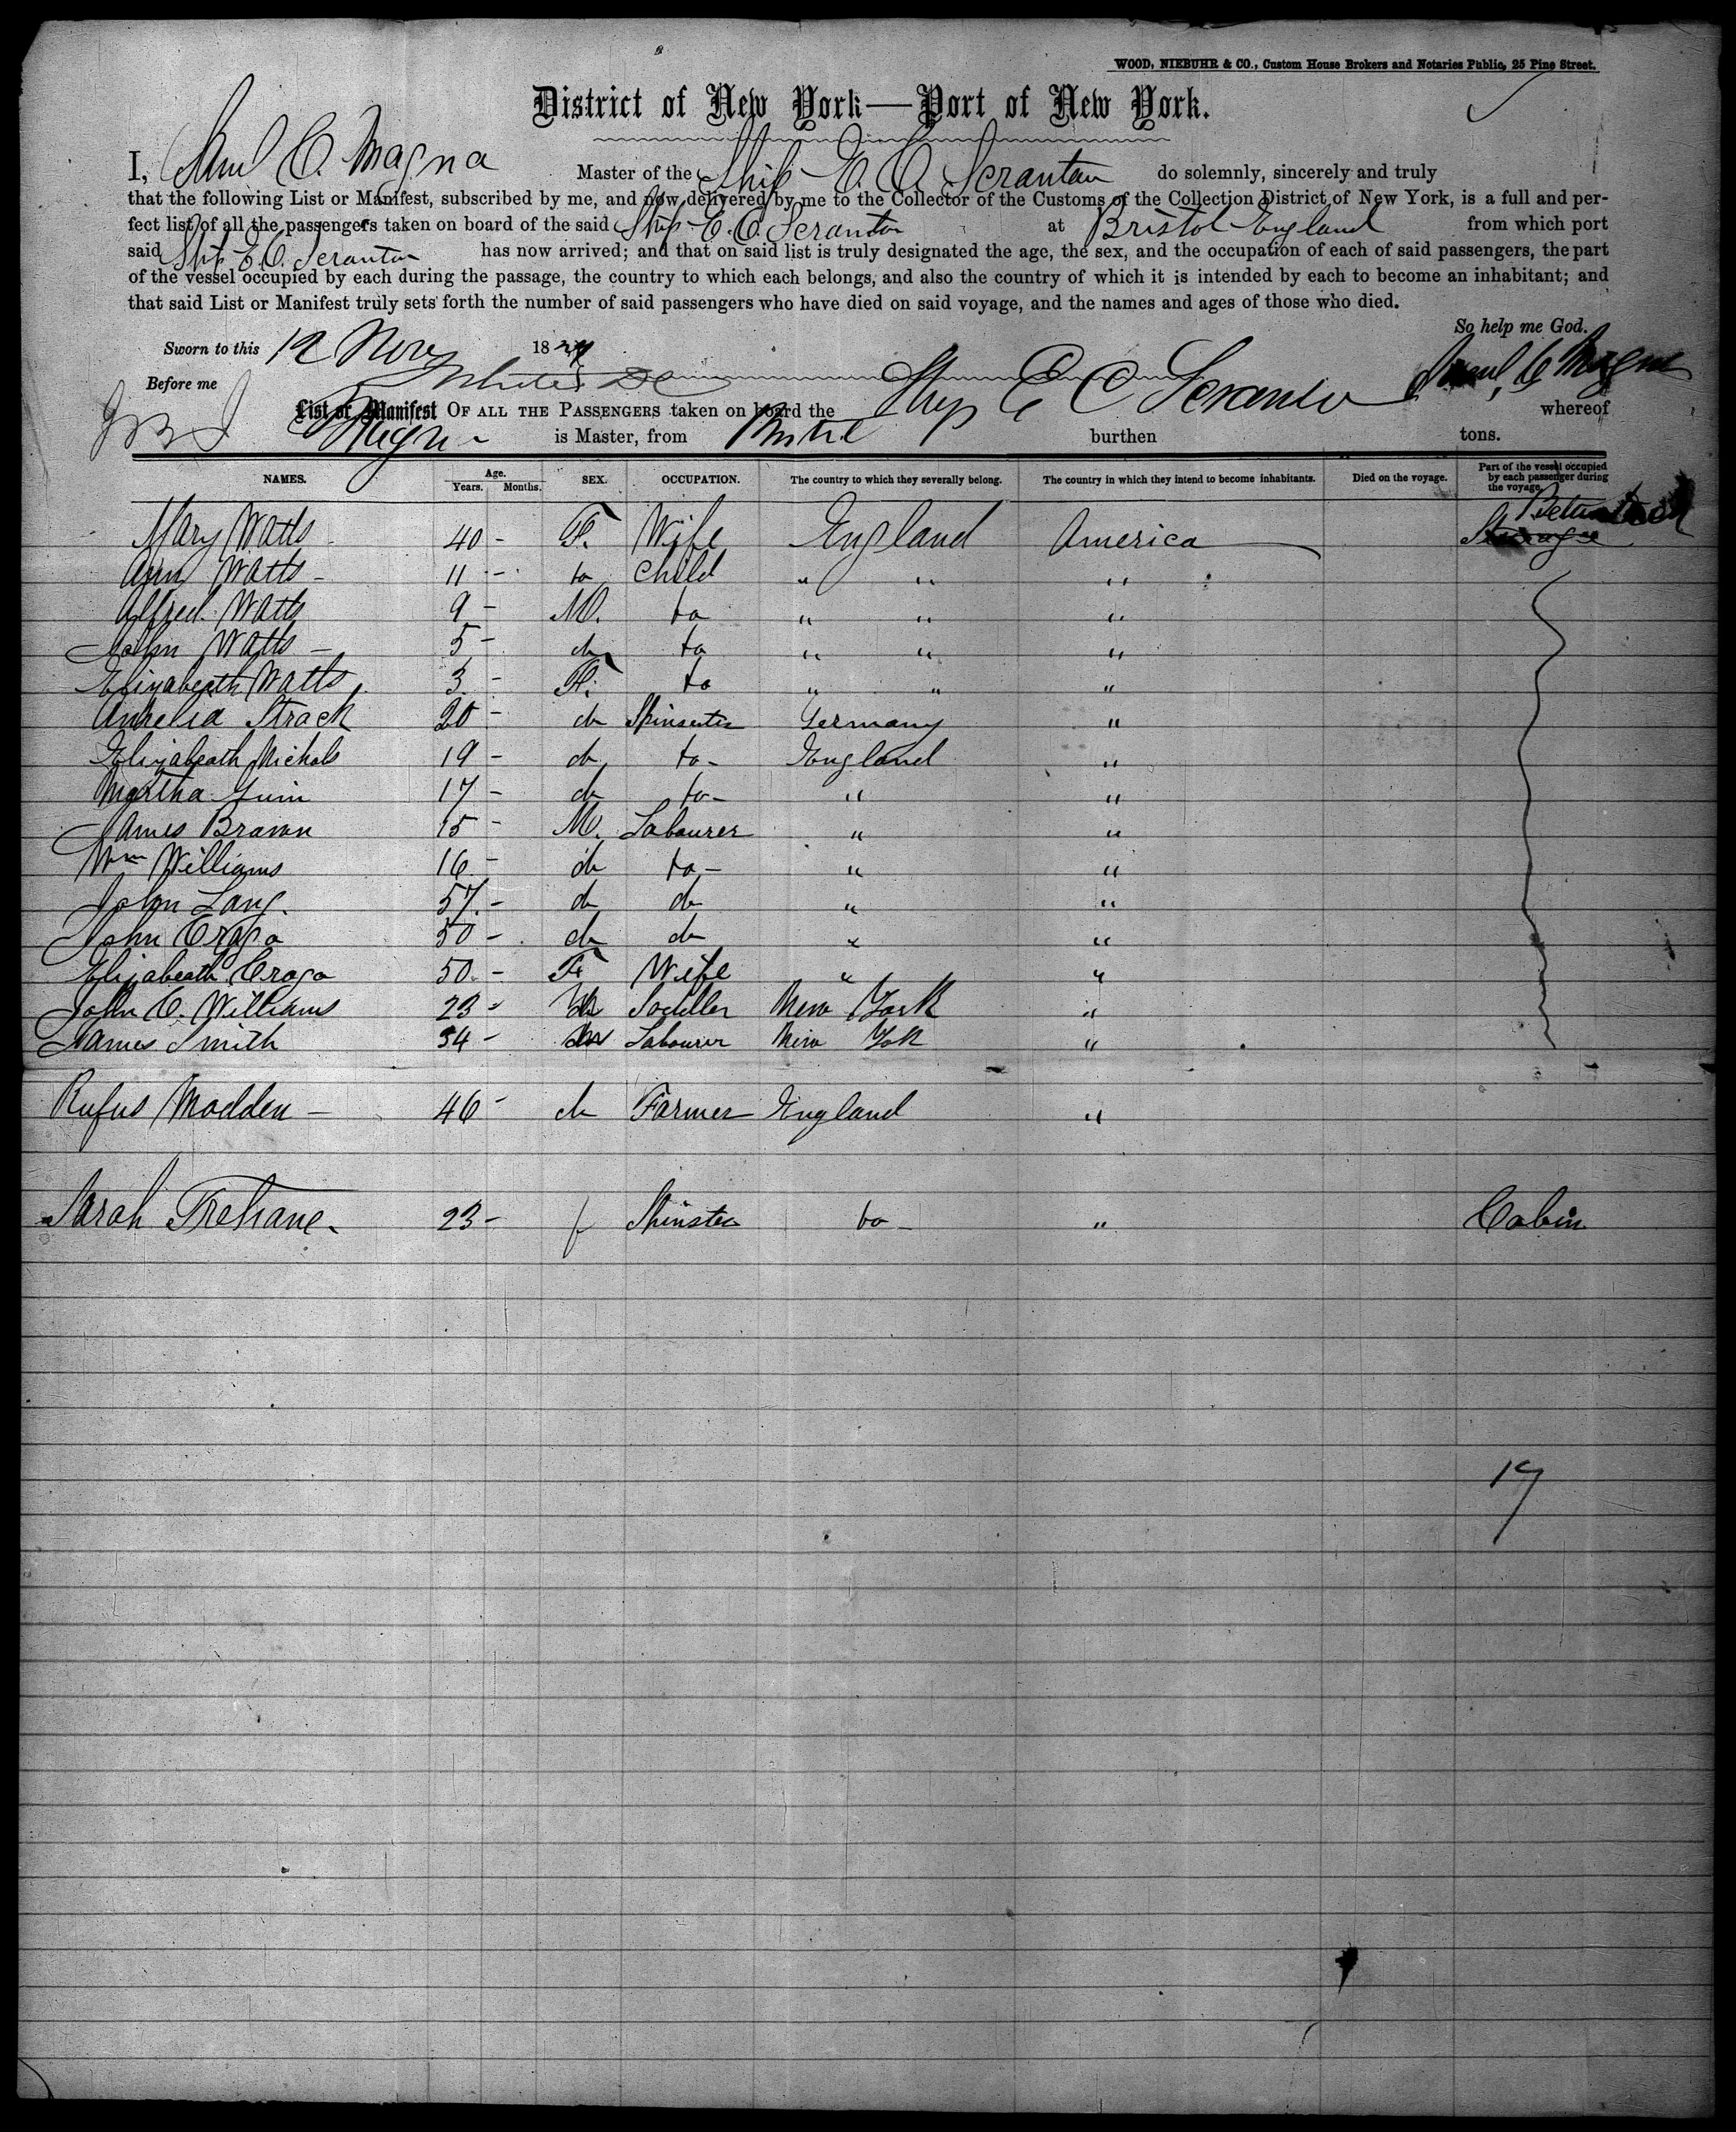 WOOD, NIEBUHR & CO., Custom House Brokers and Notaries Public, 25 Pine Street.
District of New York—Port of New York.
I, Saml C. Magna Master of the Ship E. C. Scranton do solemnly, sincerely and truly
that the following List or Manifest, subscribed by me, and now delivered by me to the Collector of the Customs of the Collection District of New York, is a full and per-
fect list of all the passengers taken on board of the said Ship E. C. Scranton at Bristol England from which port
said Ship E. C. Scranton has now arrived; and that on said list is truly designated the age, the sex, and the occupation of each of said passengers, the part
of the vessel occupied by each during the passage, the country to which each belongs, and also the country of which it is intended by each to become an inhabitant; and
that said List or Manifest truly sets forth the number of said passengers who have died on said voyage, and the names and ages of those who died.
So help me God.
Sworn to this 12 Nov 18 Saml C Magna
Before me
List or Manifest OF ALL THE PASSENGERS taken on board the Ship E C Scranton whereof
Magna is Master, from Bristol burthen tons.
NAMES. Age. Years. Months. SEX. OCCUPATION. The country to which they severally belong. The country in which they intend to become inhabitants. Died on the voyage. Part of the vessel occupied by each passenger during the voyage.
Mary Watts 40 - F. Wife England America Steerage
Ann Watts - 11 - do Child " " "
Alfred Watts 9 - M. do " " "
John Watts - 5 - do do " " "
Elizabeath Watts 3 - F. do " " "
Aurelia Strack 20 - do Spinster Germany "
Elizabeath Nichols 19 - do do - England "
Martha 17 - do do - " "
James Brown 15 - M. Labourer " "
Wm Williams 16 - do do - " "
John Lang. 57 - do do " "
John Crago 50 - do do " "
Elizabeath Crago 50 - F. Wife " "
John C. Williams 23 - M Saddler New York "
James Smith 34 - M Labourer New York "
Rufus Madden - 46 - do Farmer England "
Sarah Trehane - 23 - f Spinster do - " Cabin
17